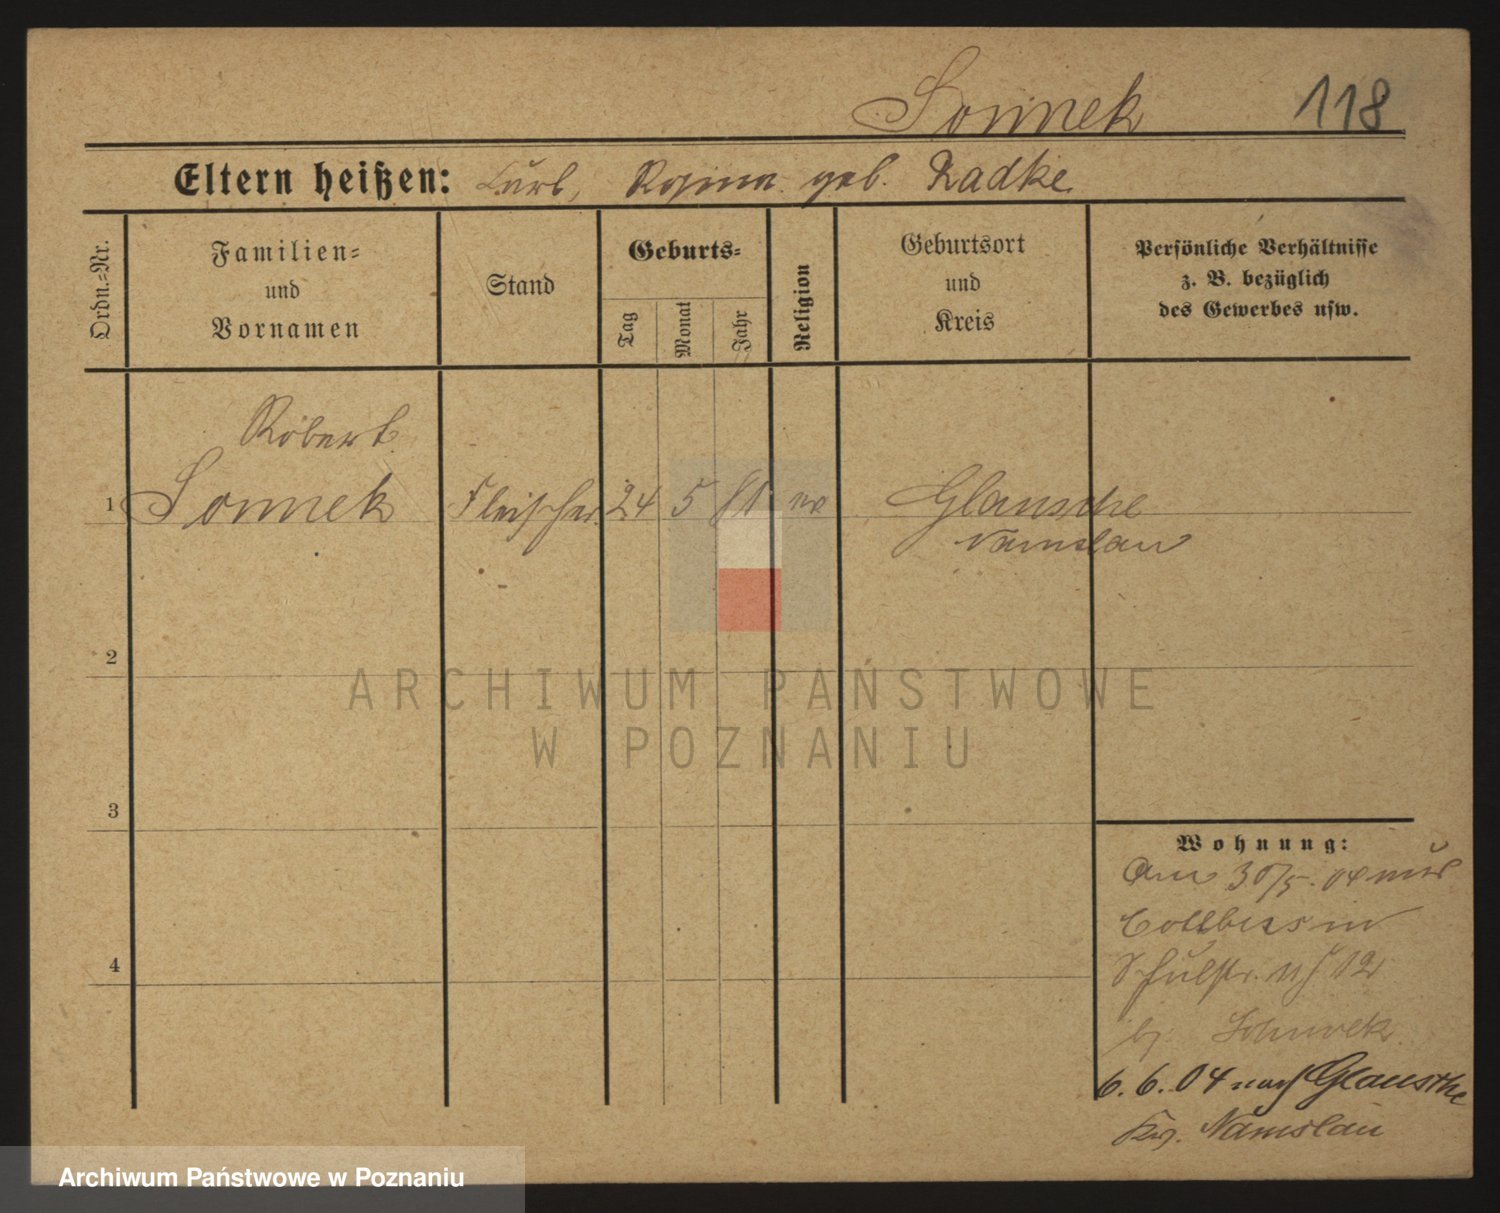 Sonnek 118
Eltern heißen: Karl, Rosina geb. Radke
Ordn.-Nr.
Familien-
und
Vornamen
Stand
Geburts-
Tag
Monat
Jahr
Religion
Geburtsort
und
Kreis
Persönliche Verhältnisse
z. B. bezüglich
des Gewerbes usw.
Robert
1 Sonnek Fleischer 24 5 81 ev Glausche
Namslau
2
3
4
Wohnung:
Am 30/5. 04 aus
Cottbus in
Schulstr. 12
b/
6. 6. 04 nach Glausche
Krs. Namslau
ARCHIWUM PAŃSTWOWE
W POZNANIU
Archiwum Państwowe w Poznaniu